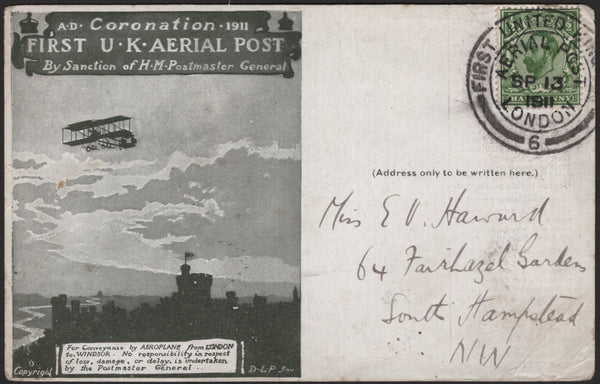 A·D· Coronation ·1911
FIRST U·K·AERIAL POST
By Sanction of H·M·Postmaster General
For Conveyance by AEROPLANE from LONDON
to WINDSOR. No responsibility in respect
of loss, damage, or delay, is undertaken
by the Postmaster General
Copyright
D·L·P Inv.
FIRST UNITED KIN
AERIAL POST
SP 13
1911
LONDON
6
HALFPENNY
(Address only to be written here.)
Miss E V. Haward
64 Fairhazel Gardens
South Hampstead
NW